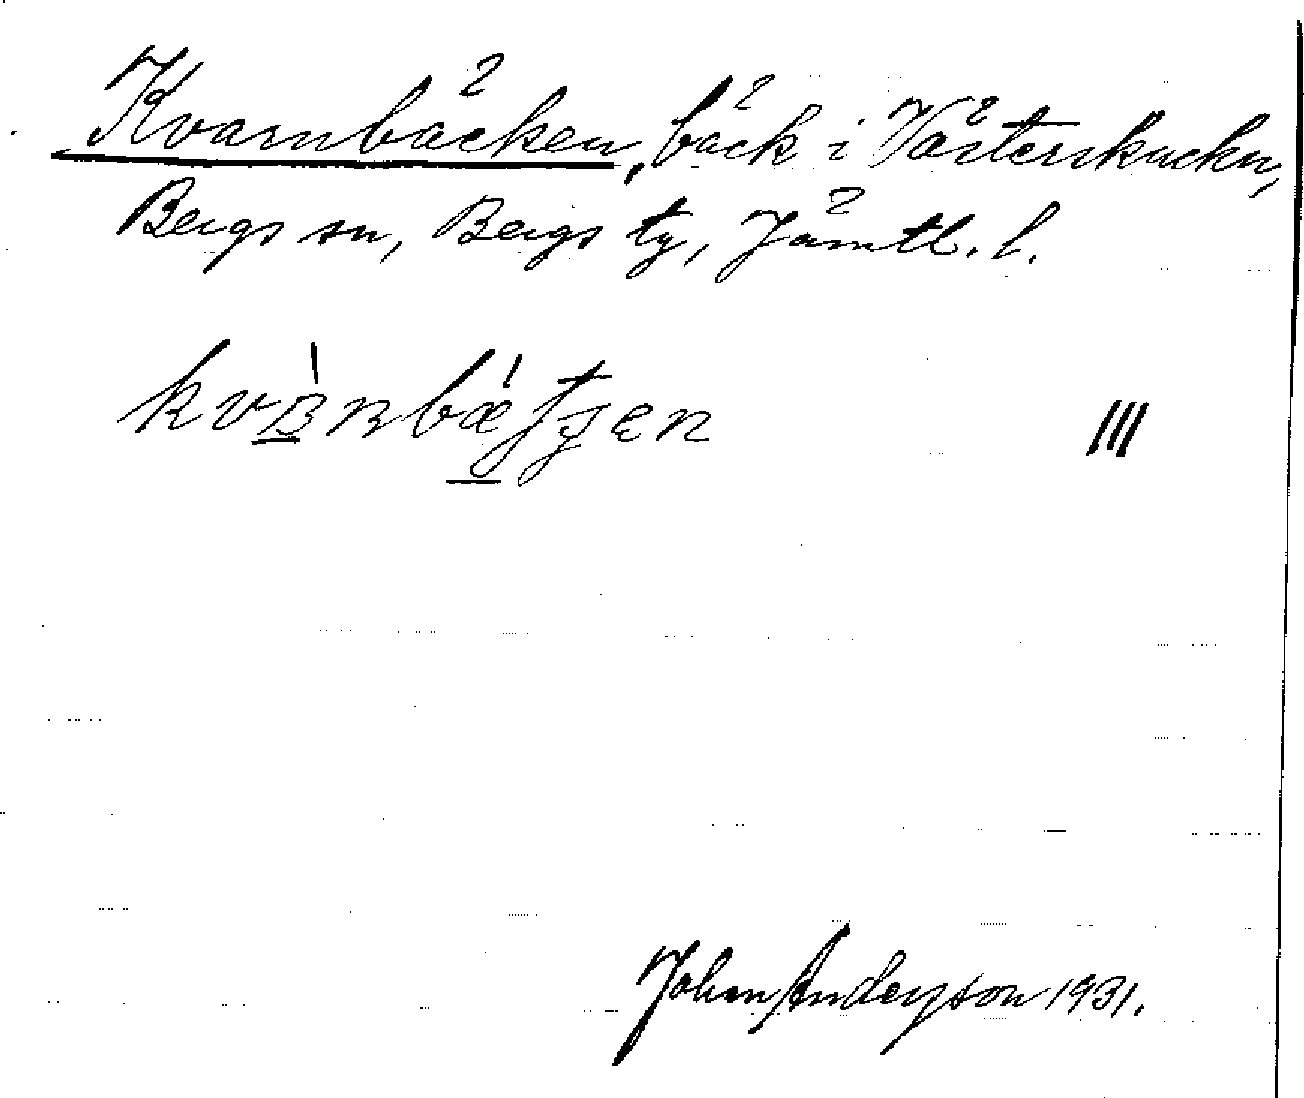 Kvarnbäcken, bäck i Västerskucku,
Bergs sn, Bergs tg, Jämtl. l.
III
Johan Anderson 1931.